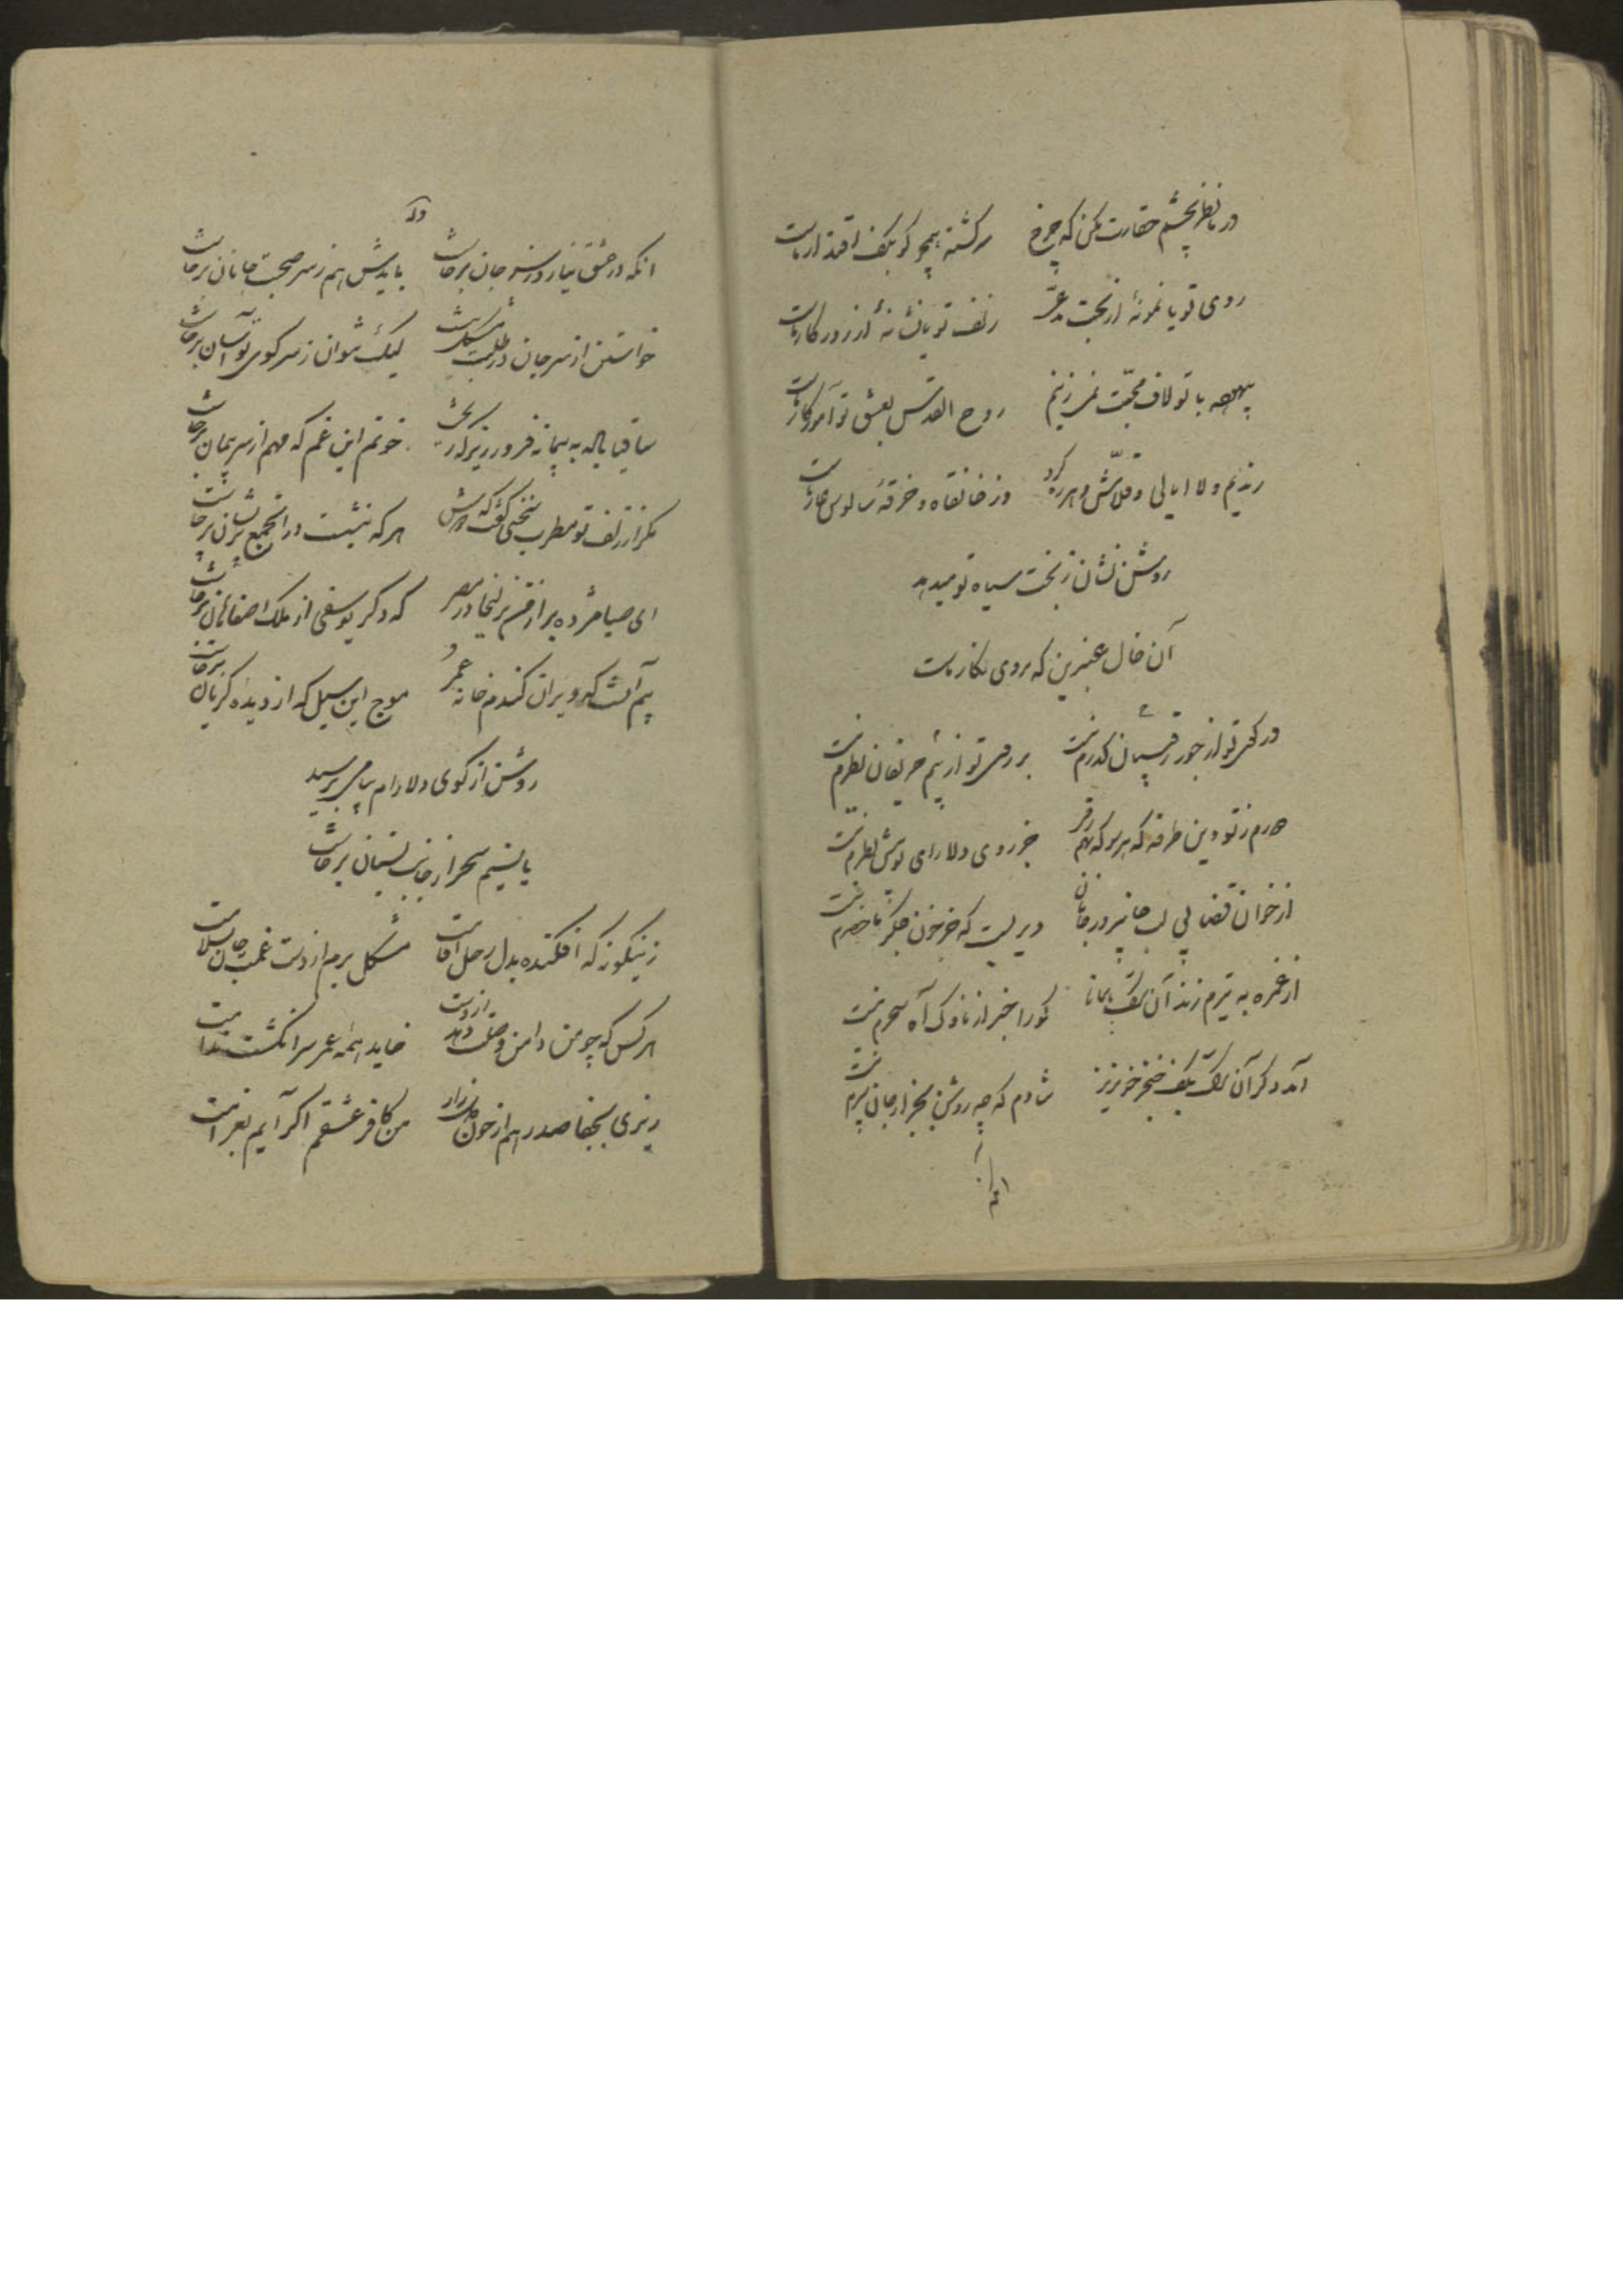 در ما نظر بچشم حقارت مکن که چرخ سرکشته همچو کو بکف اقتدار ماست
روی تو یا نمونهٔ از بخت مدعی زلف تو یا نشانهٔ از روزکار ماست
بیهوده با تو لاف محبت نمی زنیم روح القدس بعشق تو آموزکار ماست
رندیم و لا ابالی و قلاش و هرزه کرد وز خانقاه و خرقهٔ سالوس عار ماست
روشن نشان ز بخت سیاه تو میدهد
آن خال عنبرین که بروی نکار ماست
در کوی تو از جور رقیبان کذرم نیست بر روی تو از بیم حریفان نظرم نیست
دورم ز تو وین طرفه که هر سو که نهم جز روی دلارای تو پیش نظرم نیست
از خوان قضا بی لب جانپرور جانان دیریست که جز خون جکر ماحضرم نیست
از غمزه به تیرم زند آن ترک همانا کورا خبر از ناوک آه سحرم نیست
آمد دکر آن ترک بکف خنجر خونریز شادم که چو روشن بجز از جان سپرم نیست
وله
انکه در عشق نیارد ز سر جان برخاست بایدش هم ز سر صحبت جانان برخاست
خواستن از سر جان در طلبت مشکل نیست لیک نتوان ز سر کوی تو آسان برخاست
ساقیا باده به پیمانه فرو ریز
خونم این غم که مهم از سر پیمان برخاست
مکر از زلف تو مطرب سخنی کفت که دوش هر که بنشست در آن جمع پریشان برخاست
ای صبا مژده بر از من بزلیخا در مصر که دکر یوسفی از ملک صفاهان برخاست
بیم آنست که ویران کندم خانه عمر موج این سیل که از دیده کریان برخاست
روشن از کوی دلارام پیامی برسید
یا نسیم سحر از جانب بستان برخاست
زینکونه که افکنده بدل رحل اقامت مشکل برم از دست غمت جان بسلامت
هر کس که چو من دامن وصلت دهد از دست خاید همه عمر سر انکشت ندامت
ریزی بجفا صد رهم از خون دل زار من کافر عشقم اکر آیم بغرامت